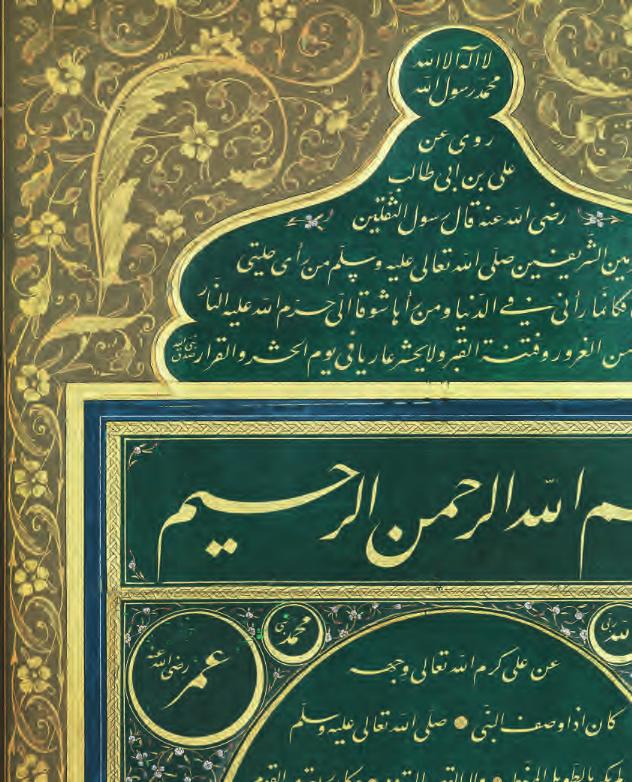 لا اله الا الله
محمد رسول الله
روى عن
على بن ابى طالب
رضى الله عنه قال رسول الثقلين
الشريفين صلى الله تعالى عليه وسلم من رأى حليتى
فكانما رأنى فى الدنيا ومن رأها شوقا الى حرم الله عليه النار
من الغرور وفتنة القبر ولا يحشر عاريا فى يوم الحشر والقرار
الله الرحمن الرحيم
محمد
عمر رضى الله عنه
عن على كرم الله تعالى وجهه
كان اذا وصف النبى صلى الله تعالى عليه وسلم